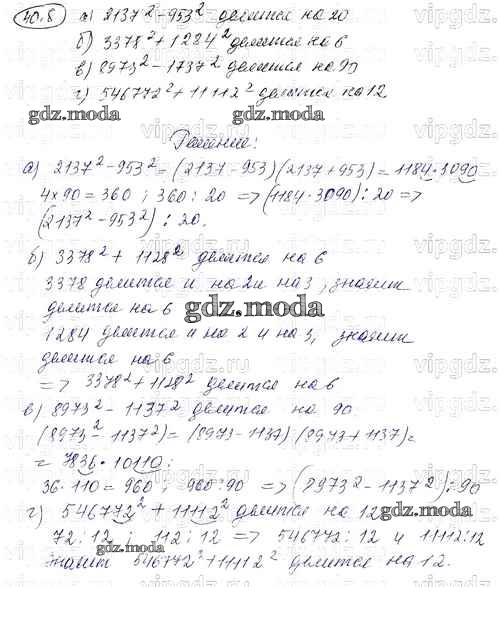 40.8 а) 2137² - 953² делится на 20
б) 3378² + 1284² делится на 6
в) 8973² - 1737² делится на 90
г) 546772² + 11112² делится на 12
gdz.moda gdz.moda
Решение:
а) 2137² - 953² = (2137 - 953)(2137 + 953) = 1184 · 3090
4 × 90 = 360 ; 360 : 20 => (1184 · 3090) ⋮ 20 =>
(2137² - 953²) ⋮ 20.
б) 3378² + 1128² делится на 6
3378 делится и на 2 и на 3, значит
делится на 6
gdz.moda
1284 делится и на 2 и на 3, значит
делится на 6
=> 3378² + 1128² делится на 6
в) 8973² - 1137² делится на 90
(8973² - 1137²) = (8973 - 1137)·(8973 + 1137) =
= 7836 · 10110 ;
36 · 110 = 960 ; 960 : 90 => (8973² - 1137²) ⋮ 90
г) 546772² + 11112² делится на 12
72 : 12 ; 112 : 12 => 546772 : 12 и 11112 : 12
gdz.moda
Значит 546772² + 11112² делится на 12.